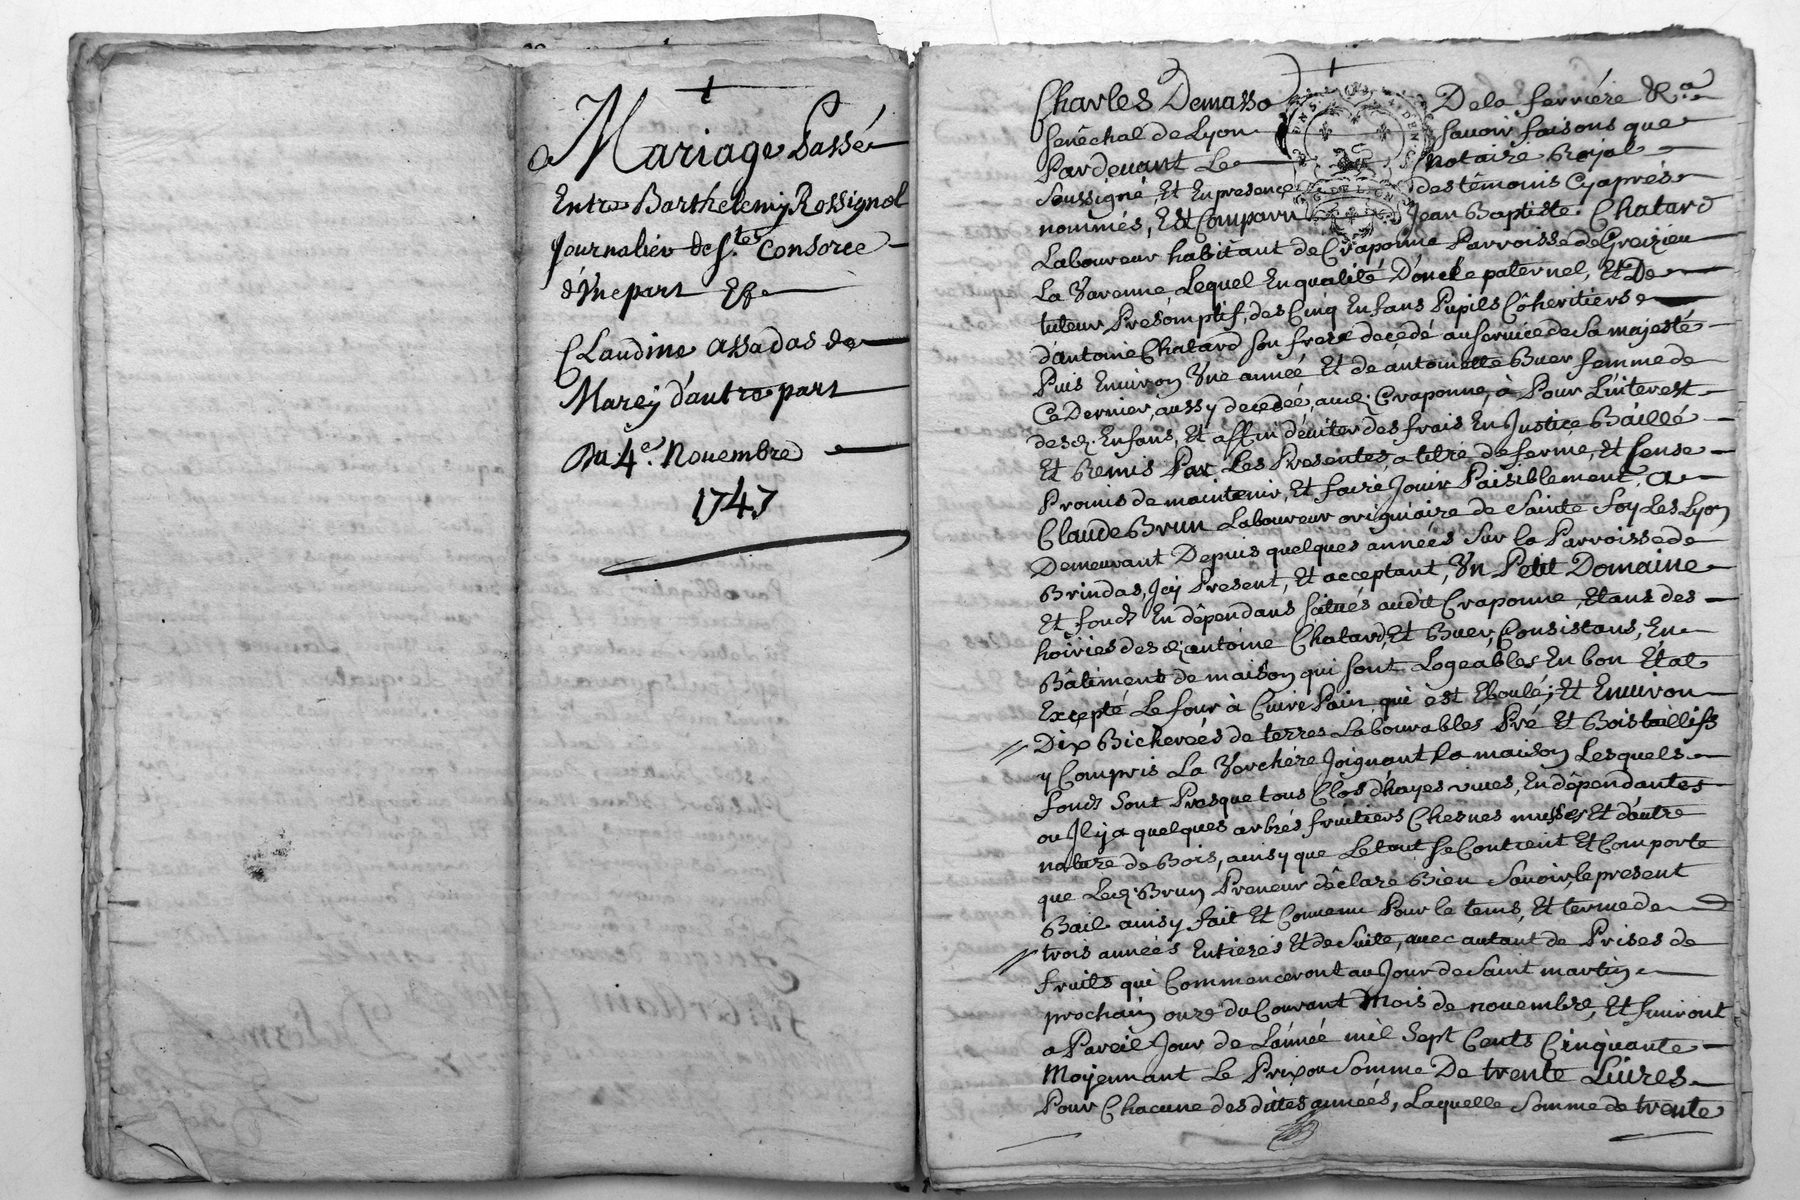 Mariage Passé
Entre Barthelemy Rossignol
Journalier de Ste Consorce
d'Vne part Et
Claudine Assadas de
Marcy d'autre part
Du 4e. Novembre
1747
Charles Demasso De la ferriére &a
senéchal de Lyon savoir faisons que
Pardevant Le Notaire Royal
soussigné, Et En presence des têmoins Cyaprés
nommés, Est Comparu Jean Baptiste Chatard
Laboureur habitant de Craponne Parroisse de Greizieu
La Varenne Lequel En qualité D'oncle paternel, Et De
tuteur Presomptif, des Cinq Enfans Pupils Cohéritiers
d'antoine Chatard son frere decedé au service de sa majesté
Puis Environ Vne année Et de antoinette Buer femme de
Ce Dernier, aussy decedée, aud. Craponne, à Pour L'interest
desd. Enfans, Et affin d'éviter des frais En Justice Baillé
Et Remis Par Les Presentes, a titre de ferme, Et sense
Promis de maintenir, Et faire Jouir Paisiblement, A
Claude Brun Laboureur originaire de Sainte foy Les Lyon
Demeurant Depuis quelques années Sur la Parroisse de
Brindas, Jcy Present, Et acceptant, Vn Petit Domaine
Et fonds En dépendans situés audit Craponne, Etans des
hoiries desd. antoine Chatard, Et Buer, Consistans, En
Bâtiment de maison qui sont Logeables En bon Etat
Excepté Le four à Cuire Pain qui est Eboulé; Et Environ
Dix Bicherées de terres Labourables Pré Et Bois tailliss
y Compris La Verchére Joignant la maison Lesquels
fonds sont Presque tous Clos d'hayes vives, En dépendantes
ou Il y a quelques arbres fruitiers Chesnes Et d'autre
nature de Bois, ainsy que Le tout se Contient Et Comporte
que Led. Brun Preneur déclare Bien Savoir, le present
Bail ainsy fait Et Convenu Pour le tems, Et terme de
trois années Entieres Et de Suite, avec autant de Prises de
fruits qui Commenceront au Jour de Saint martin
prochain onze du Courant Mois de novembre, Et finiront
a Pareil Jour de L'année mil Sept Cents Cinquante
Moyennant Le Prix ou Somme De trente Livres
Pour Chacune desdites années, Laquelle Somme de trente